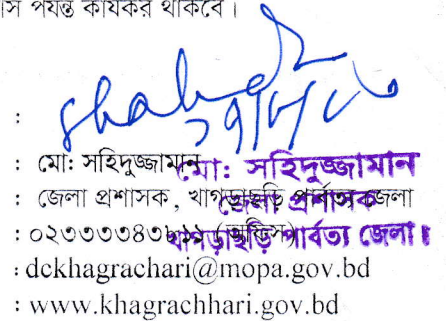 মাস পর্যন্ত কার্যকর থাকবে।
:
: মো: সহিদুজ্জামান
: জেলা প্রশাসক, খাগড়াছড়ি পার্বত্য জেলা
:
: dckhagrachari@mopa.gov.bd
: www.khagrachhari.gov.bd
মো: সহিদুজ্জামান
জেলা প্রশাসক
খাগড়াছড়ি পার্বত্য জেলা।